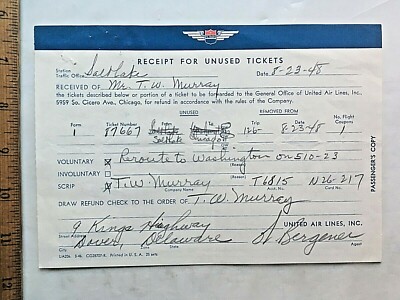 RECEIPT FOR UNUSED TICKETS
Station
Traffic Office Salt Lake Date 8-23-48
RECEIVED OF Mr. T. W. Murray
the tickets described below or portion of a ticket to be forwarded to the General Office of United Air Lines, Inc.
5959 So. Cicero Ave., Chicago, for refund in accordance with rules of the Company.
UNUSED REMOVED FROM
Form Ticket Number From To Trip Date No. Flight Coupons
1 87667 Salt Lake Chicago 126 8-23-48 1
VOLUNTARY X Reroute to Washington on 510-23
(Reason)
INVOLUNTARY
(Reason)
SCRIP X T.W. Murray T6815 N26-217
Company Name Acct. No. Card No.
DRAW REFUND CHECK TO THE ORDER OF T. W. Murray
9 Kings Highway UNITED AIR LINES, INC.
Street Address
Dover, Delaware Bergener
City State Agent
Printed in U. S. A.
PASSENGER'S COPY